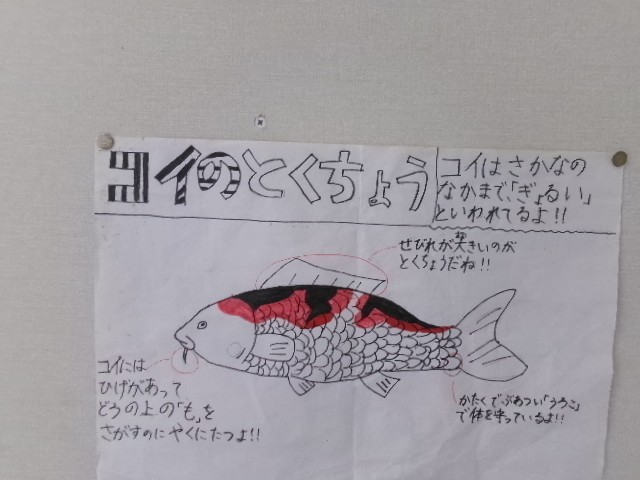 コイのとくちょう
コイはさかなの
なかまで、「ぎょるい」
といわれてるよ!!
せびれが大きいのが
とくちょうだね!!
コイには
ひげがあって
どろの上の「も」を
さがすのにやくにたつよ!!
かたくてぶあつい「うろこ」
で体を守っているよ!!